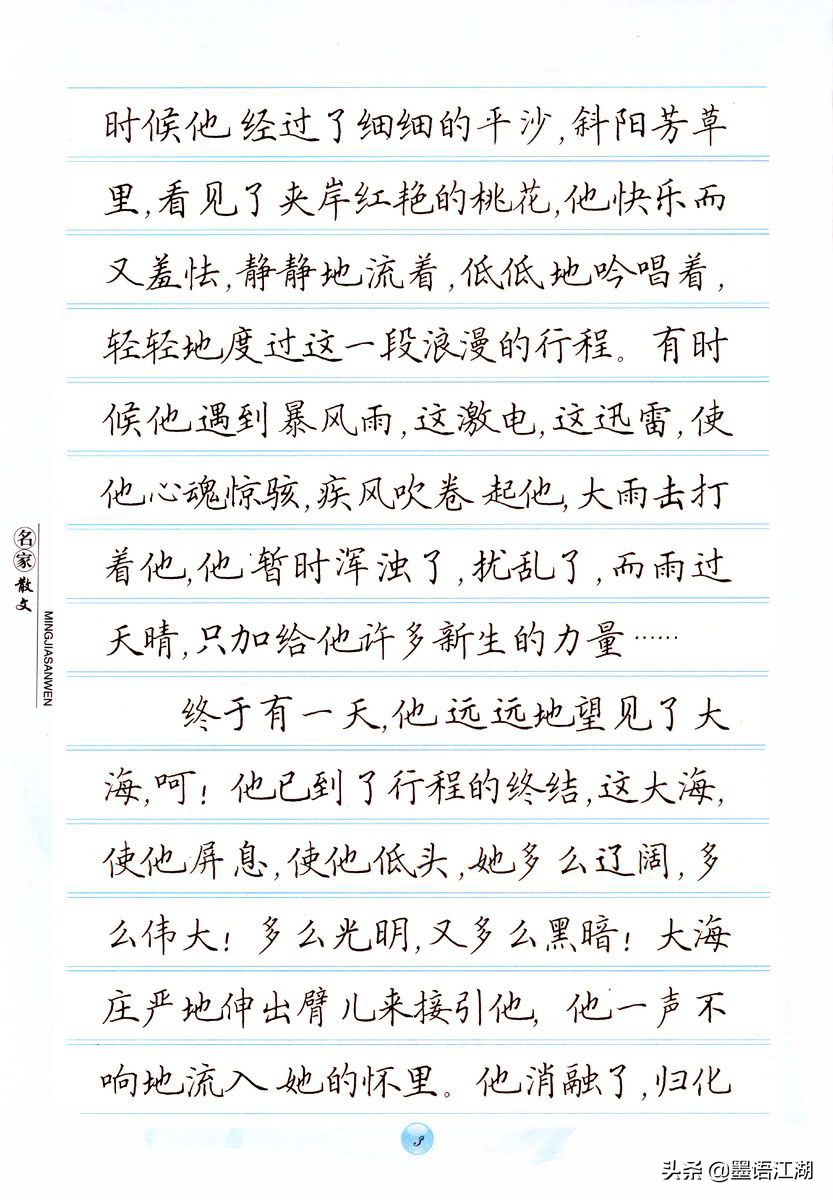 时候他经过了细细的平沙,斜阳芳草
里,看见了夹岸红艳的桃花,他快乐而
又羞怯,静静地流着,低低地吟唱着,
轻轻地度过这一段浪漫的行程。有时
候他遇到暴风雨,这激电,这迅雷,使
他心魂惊骇,疾风吹卷起他,大雨击打
着他,他暂时浑浊了,扰乱了,而雨过
天晴,只加给他许多新生的力量……
终于有一天,他远远地望见了大
海,呵!他已到了行程的终结,这大海,
使他屏息,使他低头,她多么辽阔,多
么伟大!多么光明,又多么黑暗!大海
庄严地伸出臂儿来接引他,他一声不
响地流入她的怀里。他消融了,归化
名家散文
MINGJIASANWEN
3
头条 @墨语江湖